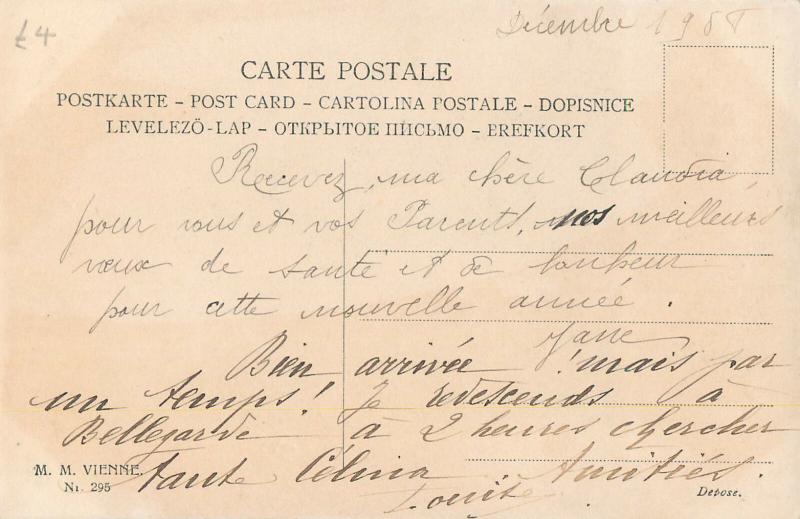 £4
Décembre 1908
CARTE POSTALE
POSTKARTE – POST CARD – CARTOLINA POSTALE – DOPISNICE
LEVELEZÖ-LAP – ОТКРЫТОЕ ПИСЬМО – BREFKORT
Recevez, ma chère Claudia,
pour vous et vos Parents, nos meilleurs
vœux de santé et de bonheur
pour cette nouvelle année.
Jane
Bien arrivée ! mais par
un temps ! Je redescends à
Bellegarde à 2 heures chercher
tante Célina. Amitiés.
Louise
M. M. VIENNE.
Nr. 295
Depose.